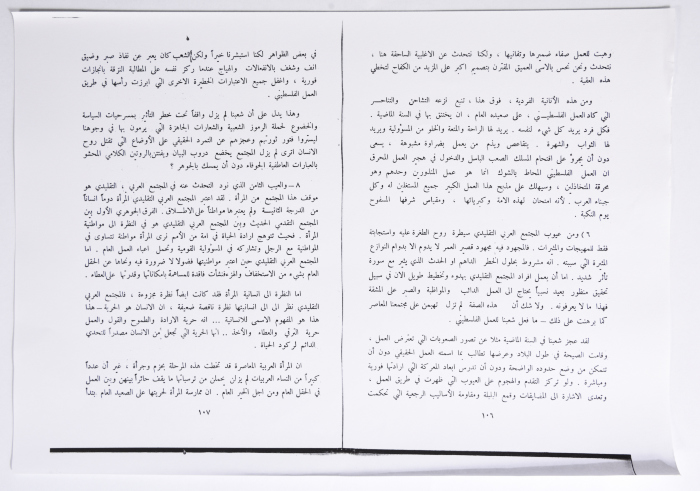 وهبت للعمل صفاء ضميرها وتفانيها ، ولكنا نتحدث عن الاغلبية الساحقة هنا ،
نتحدث ونحن نحس بالأسى العميق المقترن بتصميم اكبر على المزيد من الكفاح لتخطي
هذه العقبة .
ومن هذه الأنانية الفردية ، فوق هذا ، تنبع نزعه التشاحن والتناحر
التي كاد العمل الفلسطيني ، على صعيده العام ، ان يختنق بها في السنة الماضية .
فكل فرد يريد كل شيء لنفسه . يريد لها الراحة والمتعة والخلو من المسؤولية ويريد
لها الثواب والشهرة . يتقاعص ويذم من يعمل بضراوة مشبوهة ، يسعى
دون أن يجرؤ على اقتحام المسلك الصعب الباسل والدخول في هجير العمل المحرق
ان العمل الفلسطيني المحاط بالشوك انما هو عمل المنذورين وحدهم وهو
محرقة المتخاذلين ، وسيهلك على مذبح هذا العمل الكبير جميع المستغلين له وكل
جبناء العرب ، لأنه امتحان لهذه الامة وكبريائها ، ومقياس شرفها المسفوح
يوم النكبة .
٦ ) ومن عيوب المجتمع العربي التقليدي سيطرة روح الطفرة عليه واستجابته
فقط للمهيجات والمثيرات . فالمجهود فيه مجهود قصير العمر لا يدوم الا بدوام النوازع
المثيرة التي سببته . انه مشروط بحلول الخطر الداهم او الحدث الذي يثير مع سورة
تأثر شديد . اما أن يعمل افراد المجتمع التقليدي بهدوء وتخطيط طويل الان في سبيل
تحقيق منظور بعيد نسبياً يحتاج الى العمل الدائب والمواظبة والصبر على المشقة
فهذا ما لا يعرفونه . ولا شك أن هذه الصفة لم تزل تهيمن على مجتمعنا المعاصر
كما برهنت على ذلك – ما فعل شعبنا للعمل الفلسطيني .
لقد عجز شعبنا في السنة الماضية مثلا عن تصور الصعوبات التي تعترض العمل ،
وقامت الصيحة في طول البلاد وعرضها تطالب بما اسمته العمل الحقيقي دون أن
تتمكن من وضع حدوده الواضحة ودون أن تدرس ابعاد المعركة التي ارادتها فورية
ومباشرة . ولو تركز التقدم والهجوم على العيوب التي ظهرت في طريق العمل ،
وتعدى الاشارة الى المضايقات وقمع البلبلة ومقاومة الأساليب الرجعية التي تحكمت
١٠٦
في بعض الظواهر لكنا استبشرنا خيراً ولكن الشعب كان يعبر عن نفاذ صبر وضيق
انف وشغف بالانفعالات والهياج عندما ركز نفسه على المطالبة النزقة بانجازات
فورية ، واغفل جميع الاعتبارات الخطيرة الاخرى التي ابرزت رأسها في طريق
العمل الفلسطيني .
وهذا يدل على أن شعبنا لم يزل واقفاً تحت خطر التأثير بمسرحيات السياسة
والخضوع لحملة الرموز الشعبية والشعارات الجاهزة التي يرمون بها في وجوهنا
ليستروا فتور ثوريتهم وعجزهم عن التمرد الحقيقي على الأوضاع التي تقتل روح
الانسان اترى لم يزل المجتمع يخضع دروب البيان ويفتتن بالرونين الكلامي المحشو
بالعبارات العاطفية الجوفاء دون أن يمسك بالجوهر ؟
٨ – والعيب الثامن الذي نود التحدث عنه في المجتمع العربي ، التقليدي هو
موقف هذا المجتمع من المرأة . لقد اعتبر المجتمع العربي التقليدي المرأة دوماً انساناً
من الدرجة الثانية ولم يعتبرها مواطناً على الاطلاق . الفرق الجوهري الأول بين
المجتمع التقدمي الحديث وبين المجتمع العربي التقليدي هو في النظرة الى مواطنية
المرأة . فحيث تتوهج ارادة الحياة في امة من الأمم ترى المرأة مواطنة تتساوى في
المواطنية مع الرجل وتشاركه في المسؤولية القومية وتحمل اعباء العمل العام . اما
المجتمع العربي التقليدي حين اعتبر مواطنيتها فضولا لا ضرورة فيه ونحاها عن الحقل
العام بشيء من الاستخفاف والهزء فنشأت فاقدة للمساهمة بامكاناتها وقدرتها على العطاء .
اما النظرة الى انسانية المرأة فقد كانت ايضاً نظرة مجزوءة ، فالمجتمع العربي
التقليدي نظر الى الى انسانيتها نظرة ناقصة ضعيفة ، ان الانسان هو الحرية – هذا
هذا هو المفهوم الاسمى للانسانية ... انه حرية الارادة والطموح والقول والعمل
حرية الرقي والعطاء والأخذ .. انها الحرية التي تجعل من الانسان مصدراً للتحدي
الدائم لركود الحياة .
ان المرأة العربية المعاصرة قد تخطت هذه المرحلة بحزم وجرأة ، غير أن عدداً
كبيراً من النساء العربيات لم يزلن يحملن من ترسباتها ما يقف حائزاً بينهن وبين العمل
في الحقل العام ومن اجل الخير العام . ان ممارسة المرأة لحريتها على الصعيد العام بتداً
١٠٧